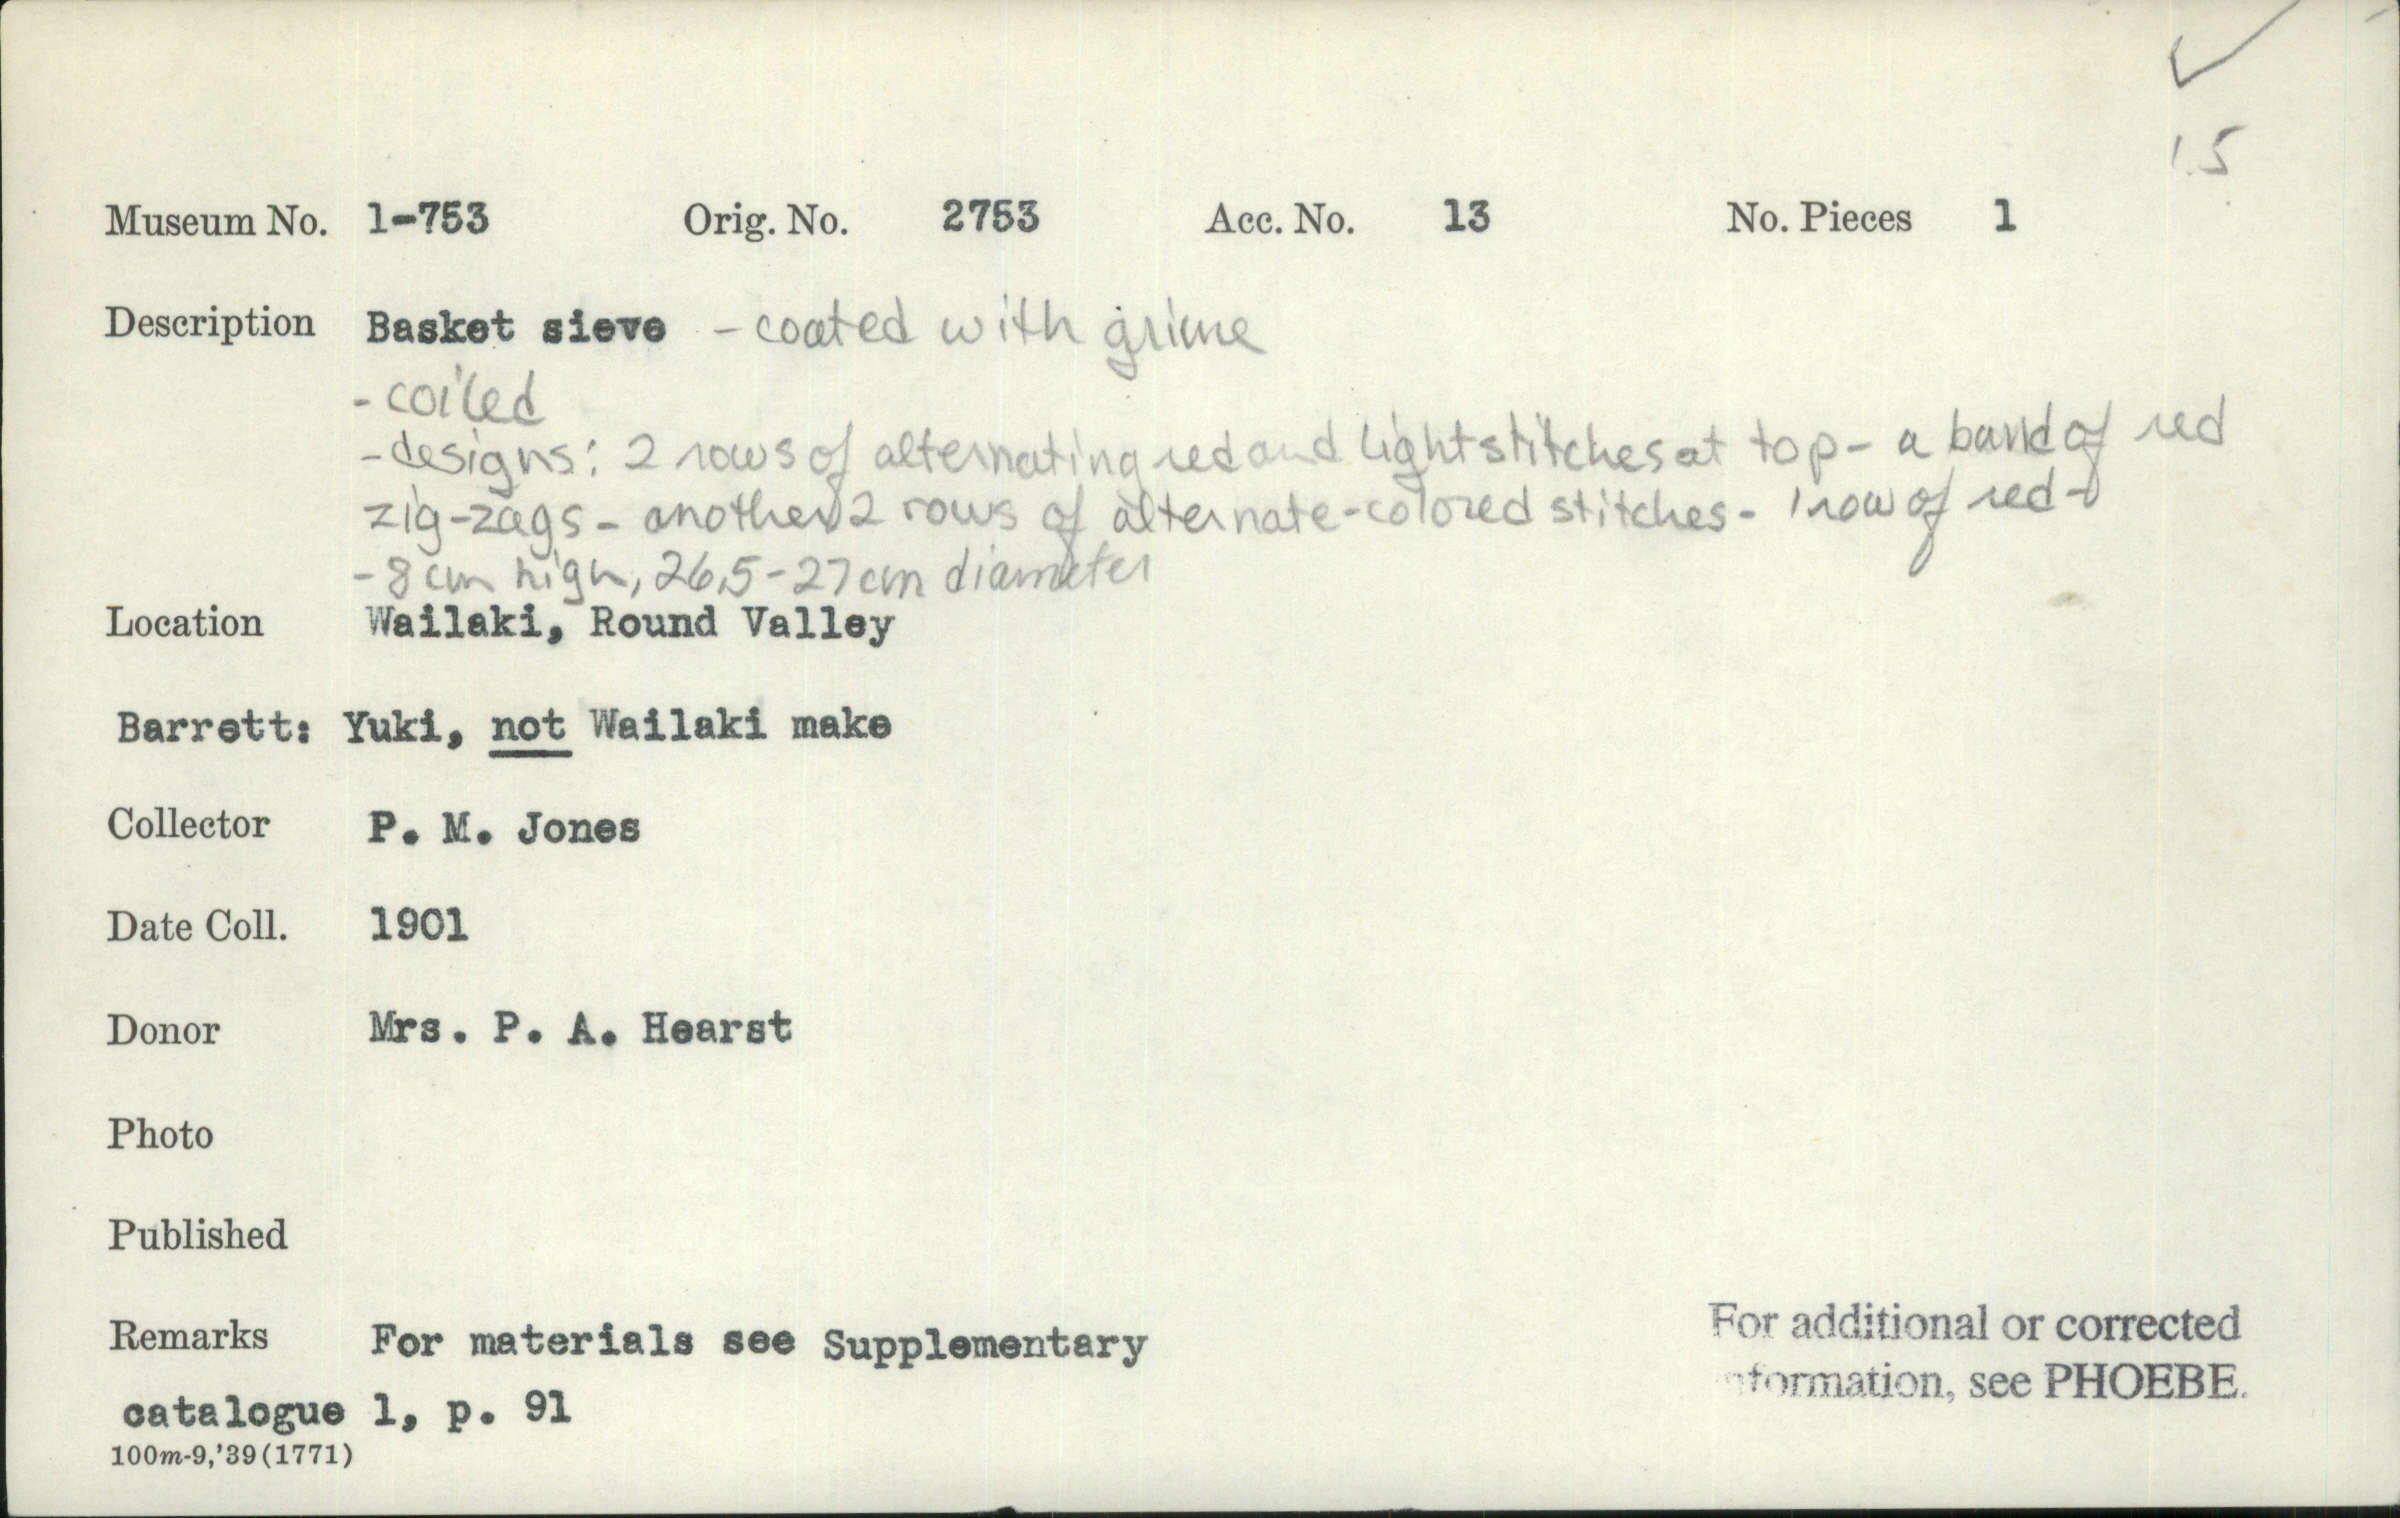 15
Museum No. 1-753 Orig. No. 2753 Acc. No. 13 No. Pieces 1
Description Basket sieve - coated with grime
- coiled
- designs: 2 rows of alternating red and light stitches at top - a band of red
zig-zags - another 2 rows of alternate-colored stitches - 1 row of red -
- 8 cm high, 26,5-27 cm diameter
Location Wailaki, Round Valley
Barrett: Yuki, not Wailaki make
Collector P. M. Jones
Date Coll. 1901
Donor Mrs. P. A. Hearst
Photo
Published
Remarks For materials see Supplementary
catalogue 1, p. 91
100m-9,'39(1771)
For additional or corrected
information, see PHOEBE.